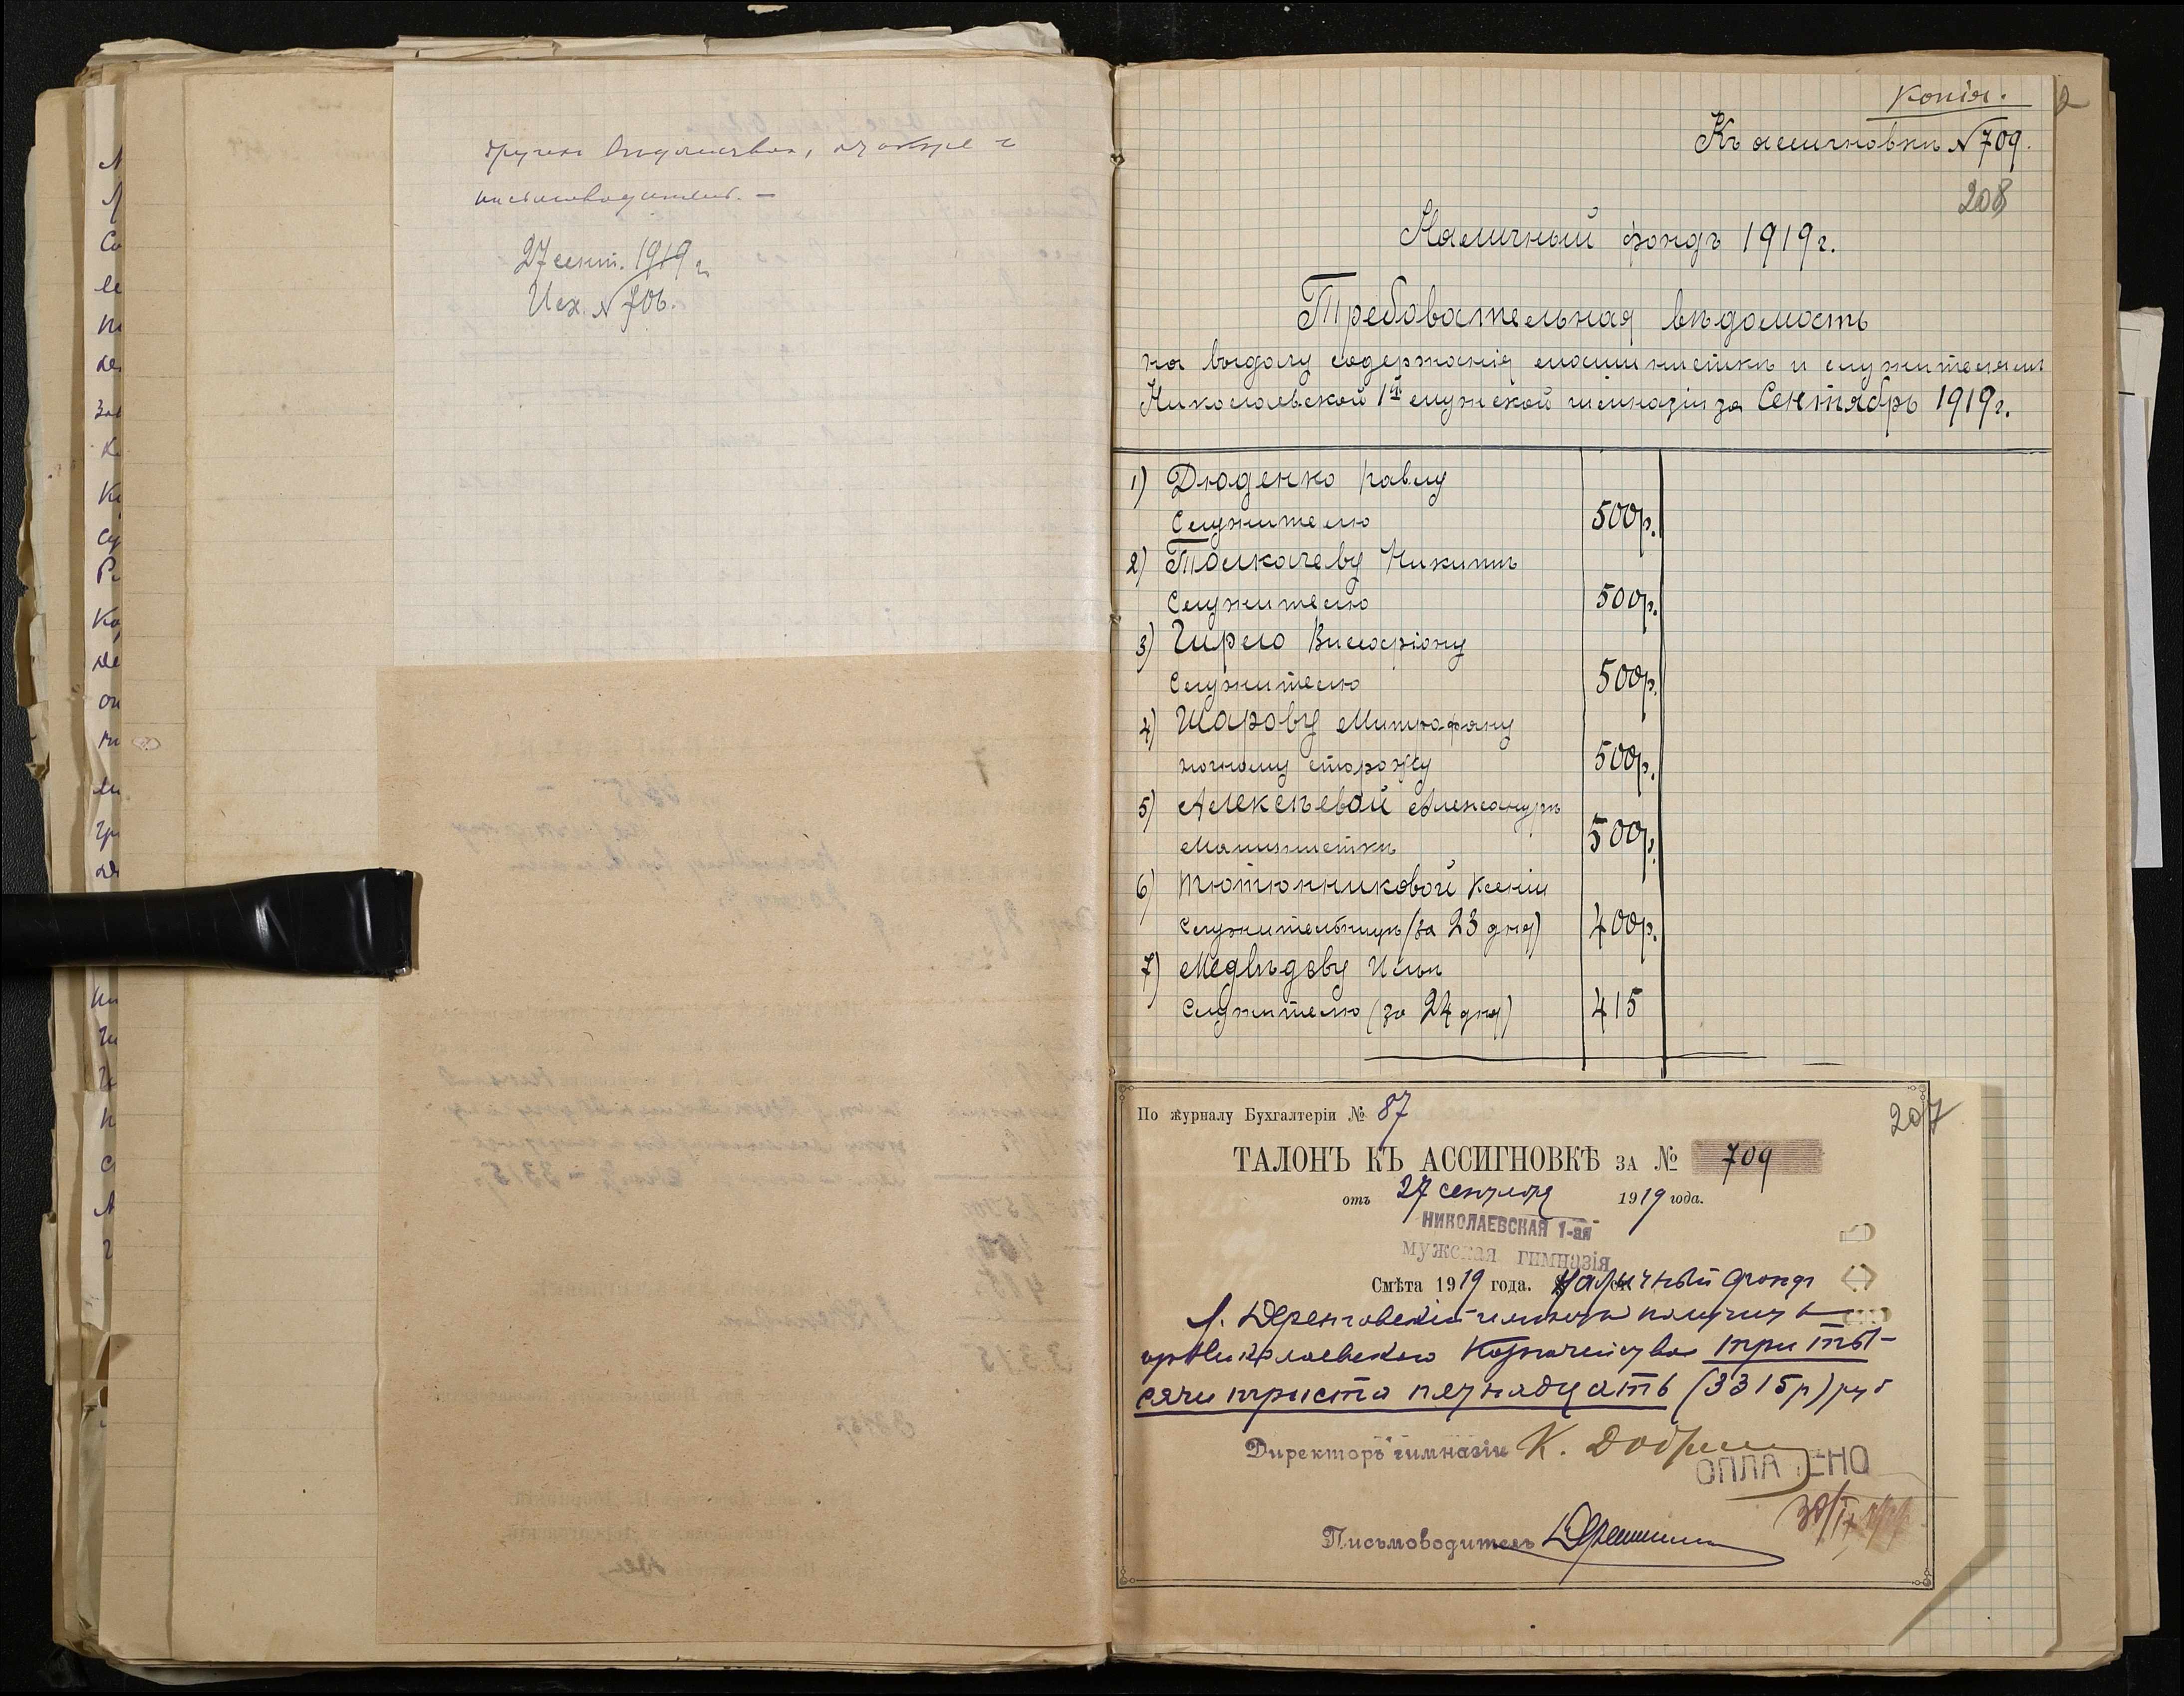 27 сент. 1919 г.
Исх. № 706.
Копія.
2
Къ ассигновкѣ № 709.
208
Наличный фондъ 1919 г.
Требовательная вѣдомость
на выдачу содержанія машинисткѣ и служителямъ
Николаевской 1й мужской гимназіи за Сентябрь 1919 г.
1) Дюденко Павлу
Служителю 500р.
2) Толкачеву Никитѣ
Служителю 500р.
3) Гирло Виссаріону
Служителю 500р.
4) Шарову Митрофану
ночному сторожу 500р.
5) Алексѣевой Александрѣ
Машинисткѣ 500р.
6) Тютюнниковой Ксеніи
Служительницѣ (за 23 дня) 400р.
7) Медвѣдеву Ильѣ
Служителю (за 24 дня) 415
По журналу Бухгалтеріи № 87
207
ТАЛОНЪ КЪ АССИГНОВКѢ ЗА № 709
отъ 27 сентября 1919 года.
НИКОЛАЕВСКАЯ 1-ая
мужская гимназія
Смѣта 1919 года. Наличный фондъ
Николаевскаго Казначейства три ты-
сячи триста пятнадцать (3315р) руб
Директоръ гимназіи К.
ОПЛАЧЕНО
Письмоводитель